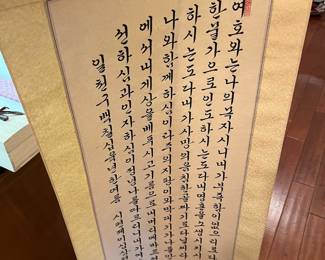 여호와는나의목자시니내가부족함이없으리로다
한물가으로인도하시는도다내영혼을소생시키시
하시는도다내가사망의음침한골짜기로다닐찌라
나와함께하심이라주의지팡이와막대기가나를
에서내게상을베푸시고기름으로내머리에바르
선하심과인자하심이정녕나를따르리니내가
일천구백칠십육년한여름 시편